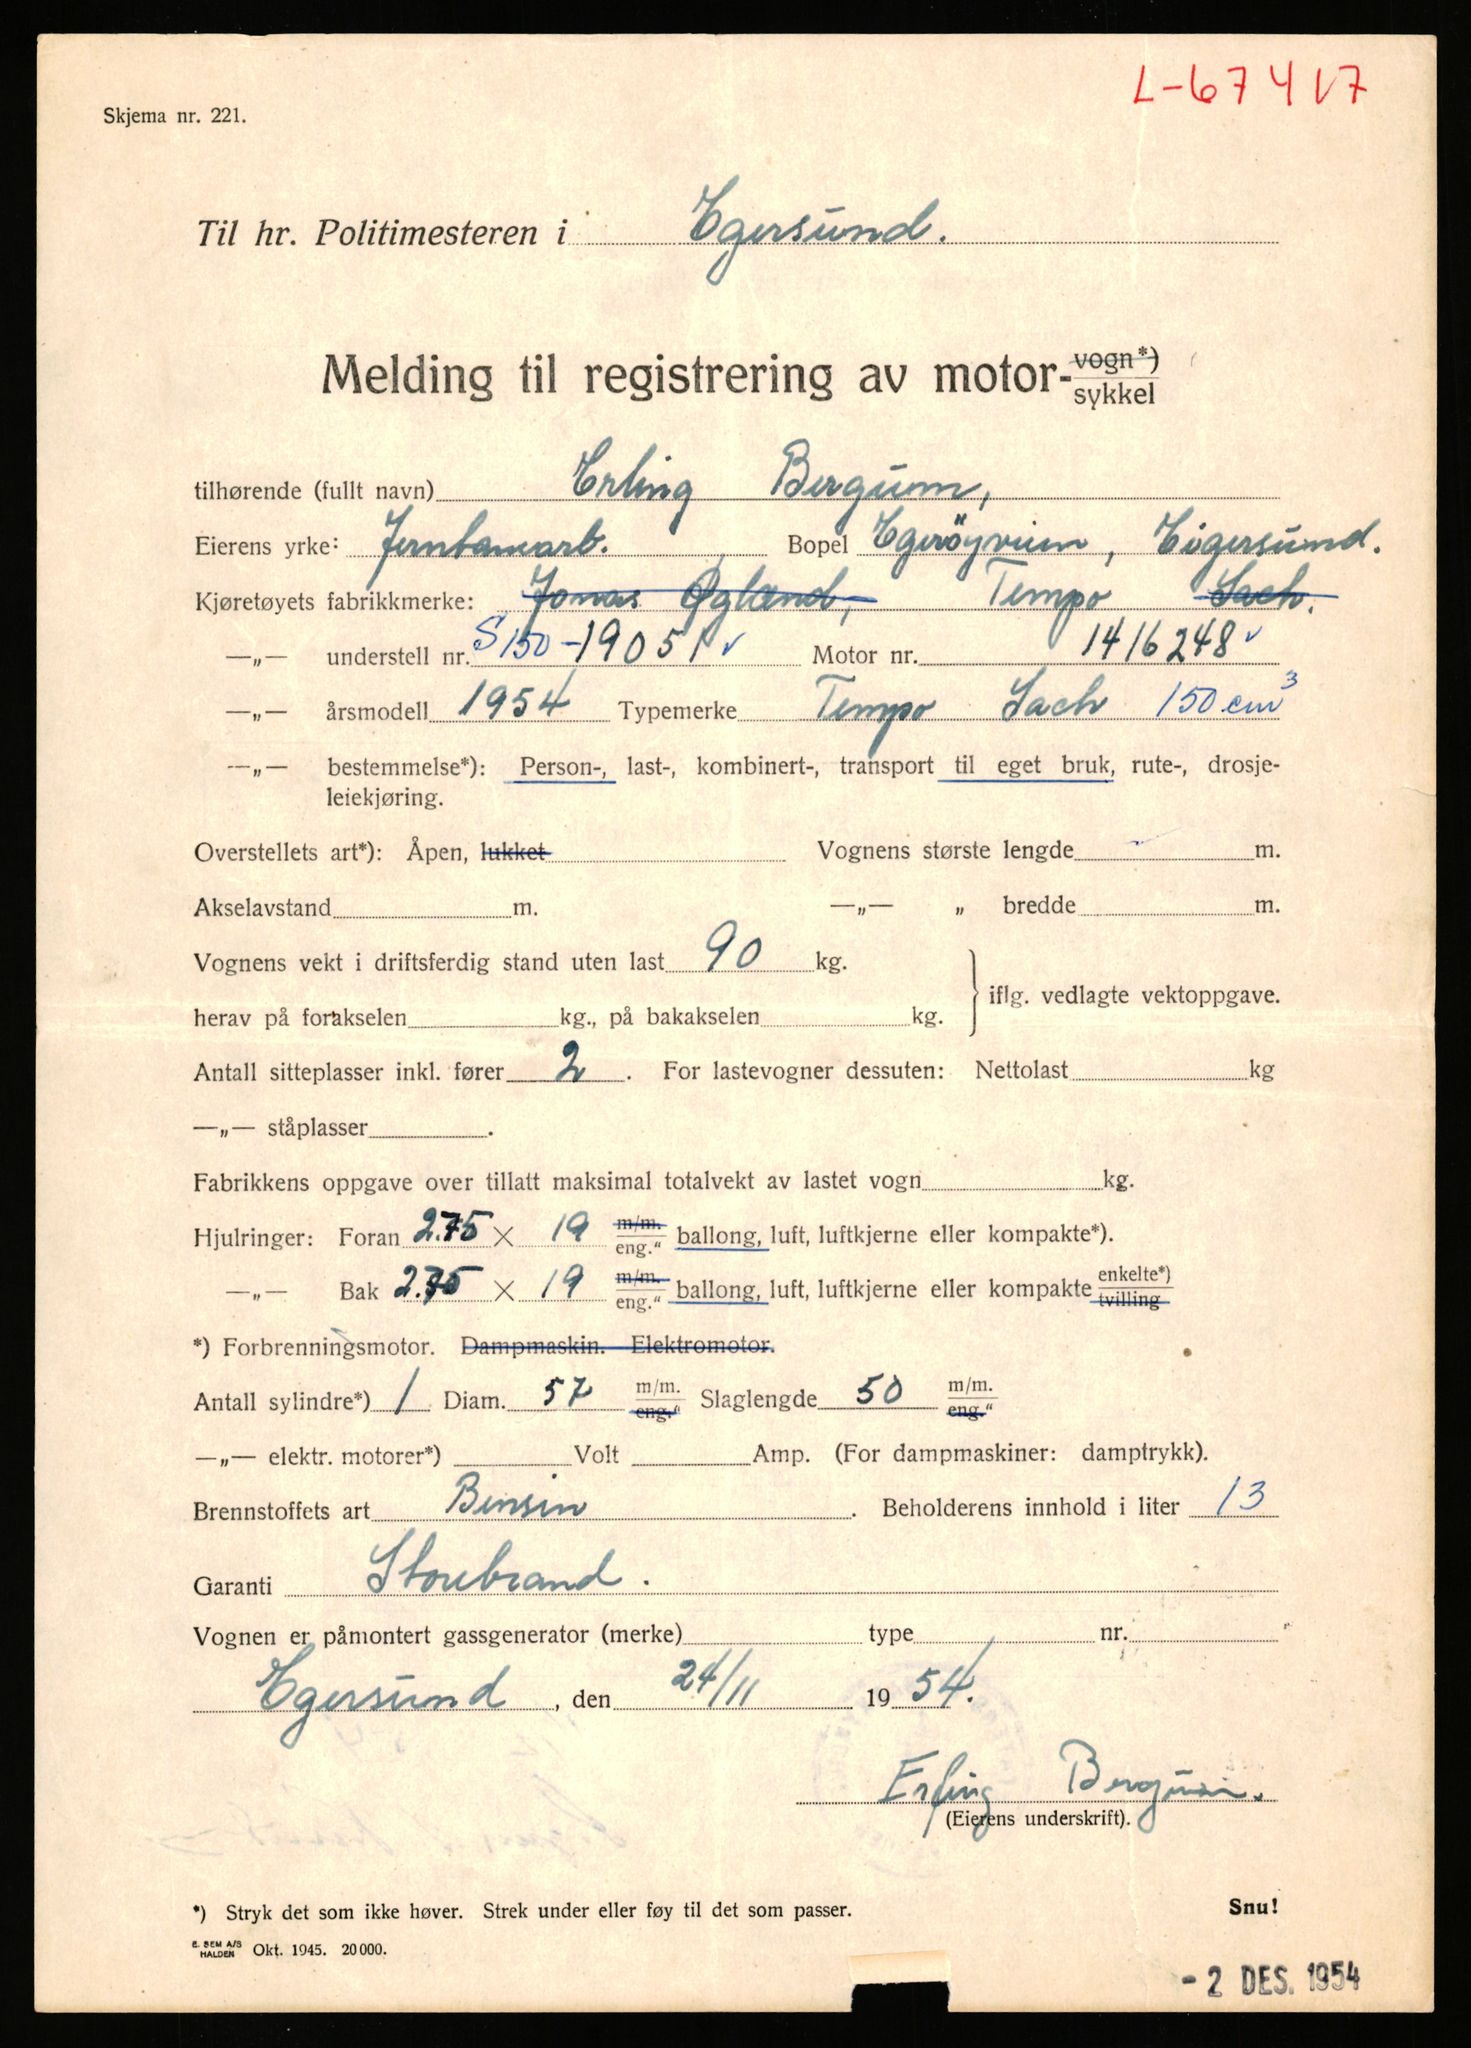 L-67417
Skjema nr. 221.
Til hr. Politimesteren i Egersund.
Melding til registrering av motor-vogn*) sykkel
tilhørende (fullt navn) Erling Bergum,
Eierens yrke: Jernbanearb. Bopel Egerøyveien, Eigersund.
Kjøretøyets fabrikkmerke: Jonas Øglænd, Tempo Sach.
—„— understell nr. S150-19051 Motor nr. 1416248
—„— årsmodell 1954 Typemerke Tempo Sach 150 cm³
—„— bestemmelse*): Person-, last-, kombinert-, transport til eget bruk, rute-, drosje-
leiekjøring.
Overstellets art*): Åpen, lukket Vognens største lengde m.
Akselavstand m. —„— „ bredde m.
Vognens vekt i driftsferdig stand uten last 90 kg.
iflg. vedlagte vektoppgave.
herav på forakselen kg., på bakakselen kg.
Antall sitteplasser inkl. fører 2. For lastevogner dessuten: Nettolast kg
—„— ståplasser.
Fabrikkens oppgave over tillatt maksimal totalvekt av lastet vogn kg.
Hjulringer: Foran 2.75 × 19 m/m. eng.“ ballong, luft, luftkjerne eller kompakte*).
—„— Bak 2.75 × 19 m/m. eng.“ ballong, luft, luftkjerne eller kompakte enkelte*) tvilling
*) Forbrenningsmotor. Dampmaskin. Elektromotor.
Antall sylindre*) 1 Diam. 57 m/m. eng.“ Slaglengde 50 m/m. eng.“
—„— elektr. motorer*) Volt Amp. (For dampmaskiner: damptrykk).
Brennstoffets art Bensin. Beholderens innhold i liter 13
Garanti Storebrand.
Vognen er påmontert gassgenerator (merke) type nr.
Egersund, den 24/11 1954.
Erling Bergum.
(Eierens underskrift).
*) Stryk det som ikke høver. Strek under eller føy til det som passer.
Snu!
E. SEM A/S HALDEN Okt. 1945. 20000.
- 2 DES. 1954